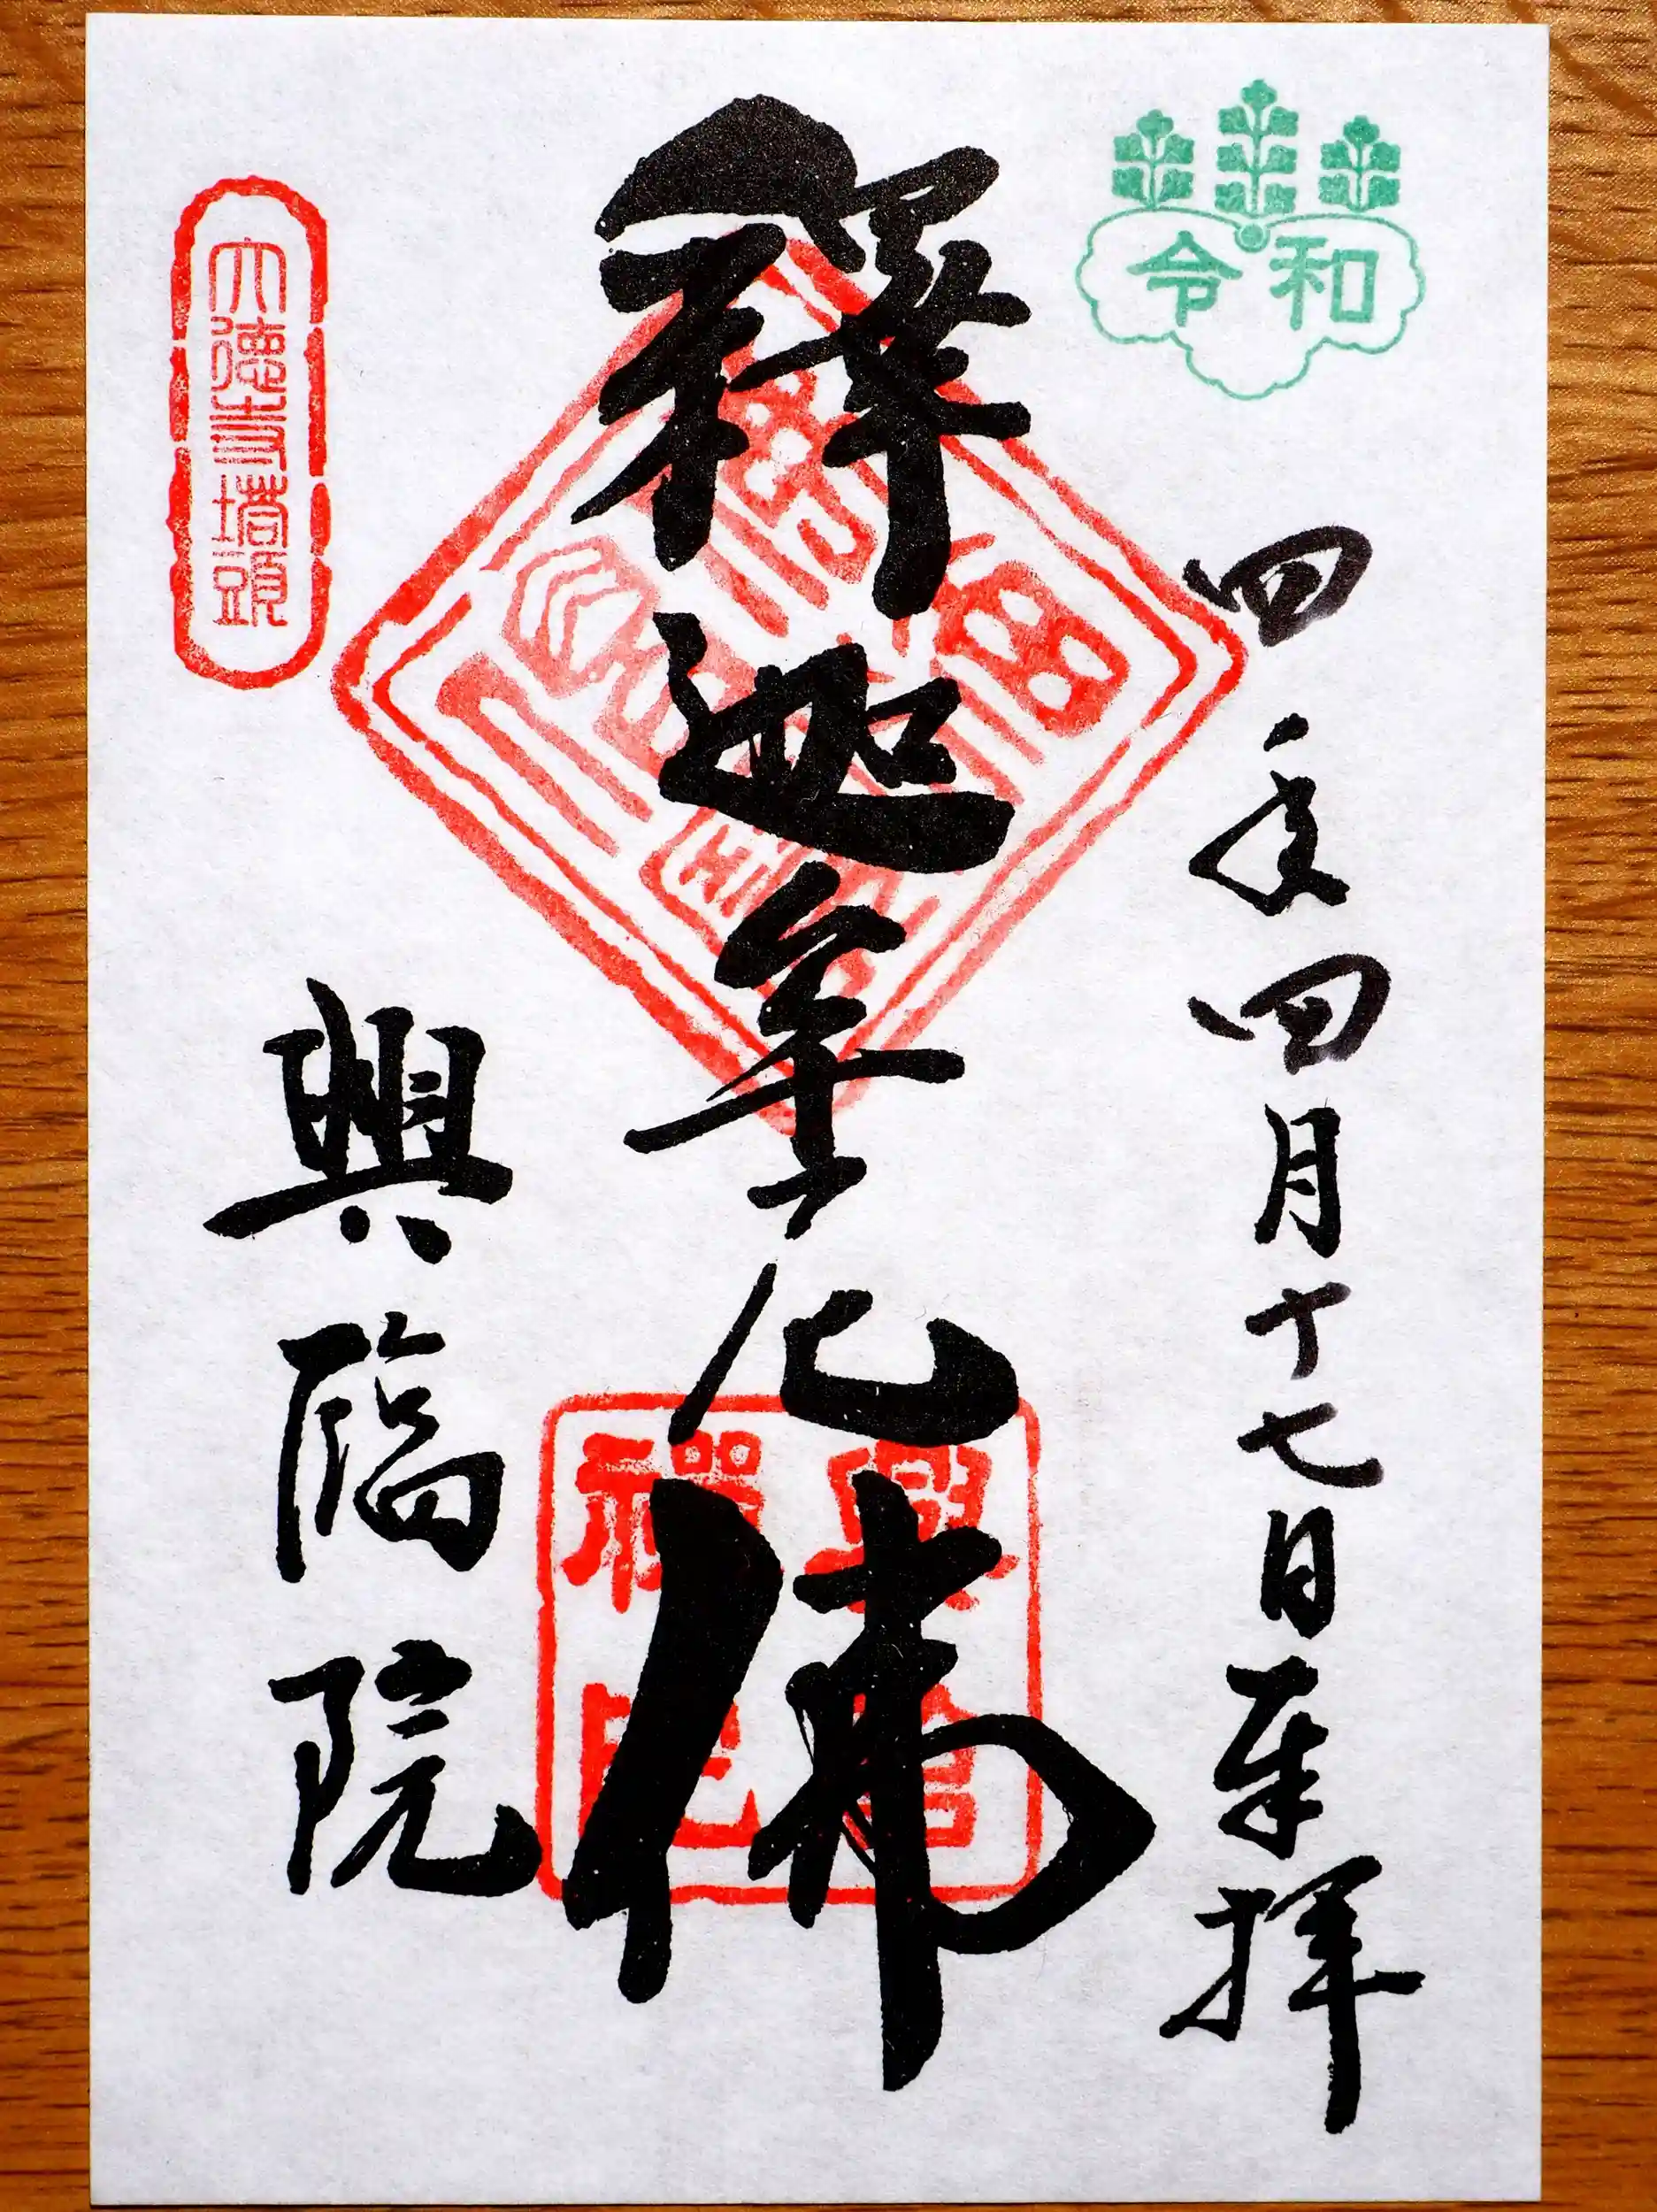 令和
四年四月十七日奉拝
釋迦牟尼佛
大徳寺塔頭
興臨院